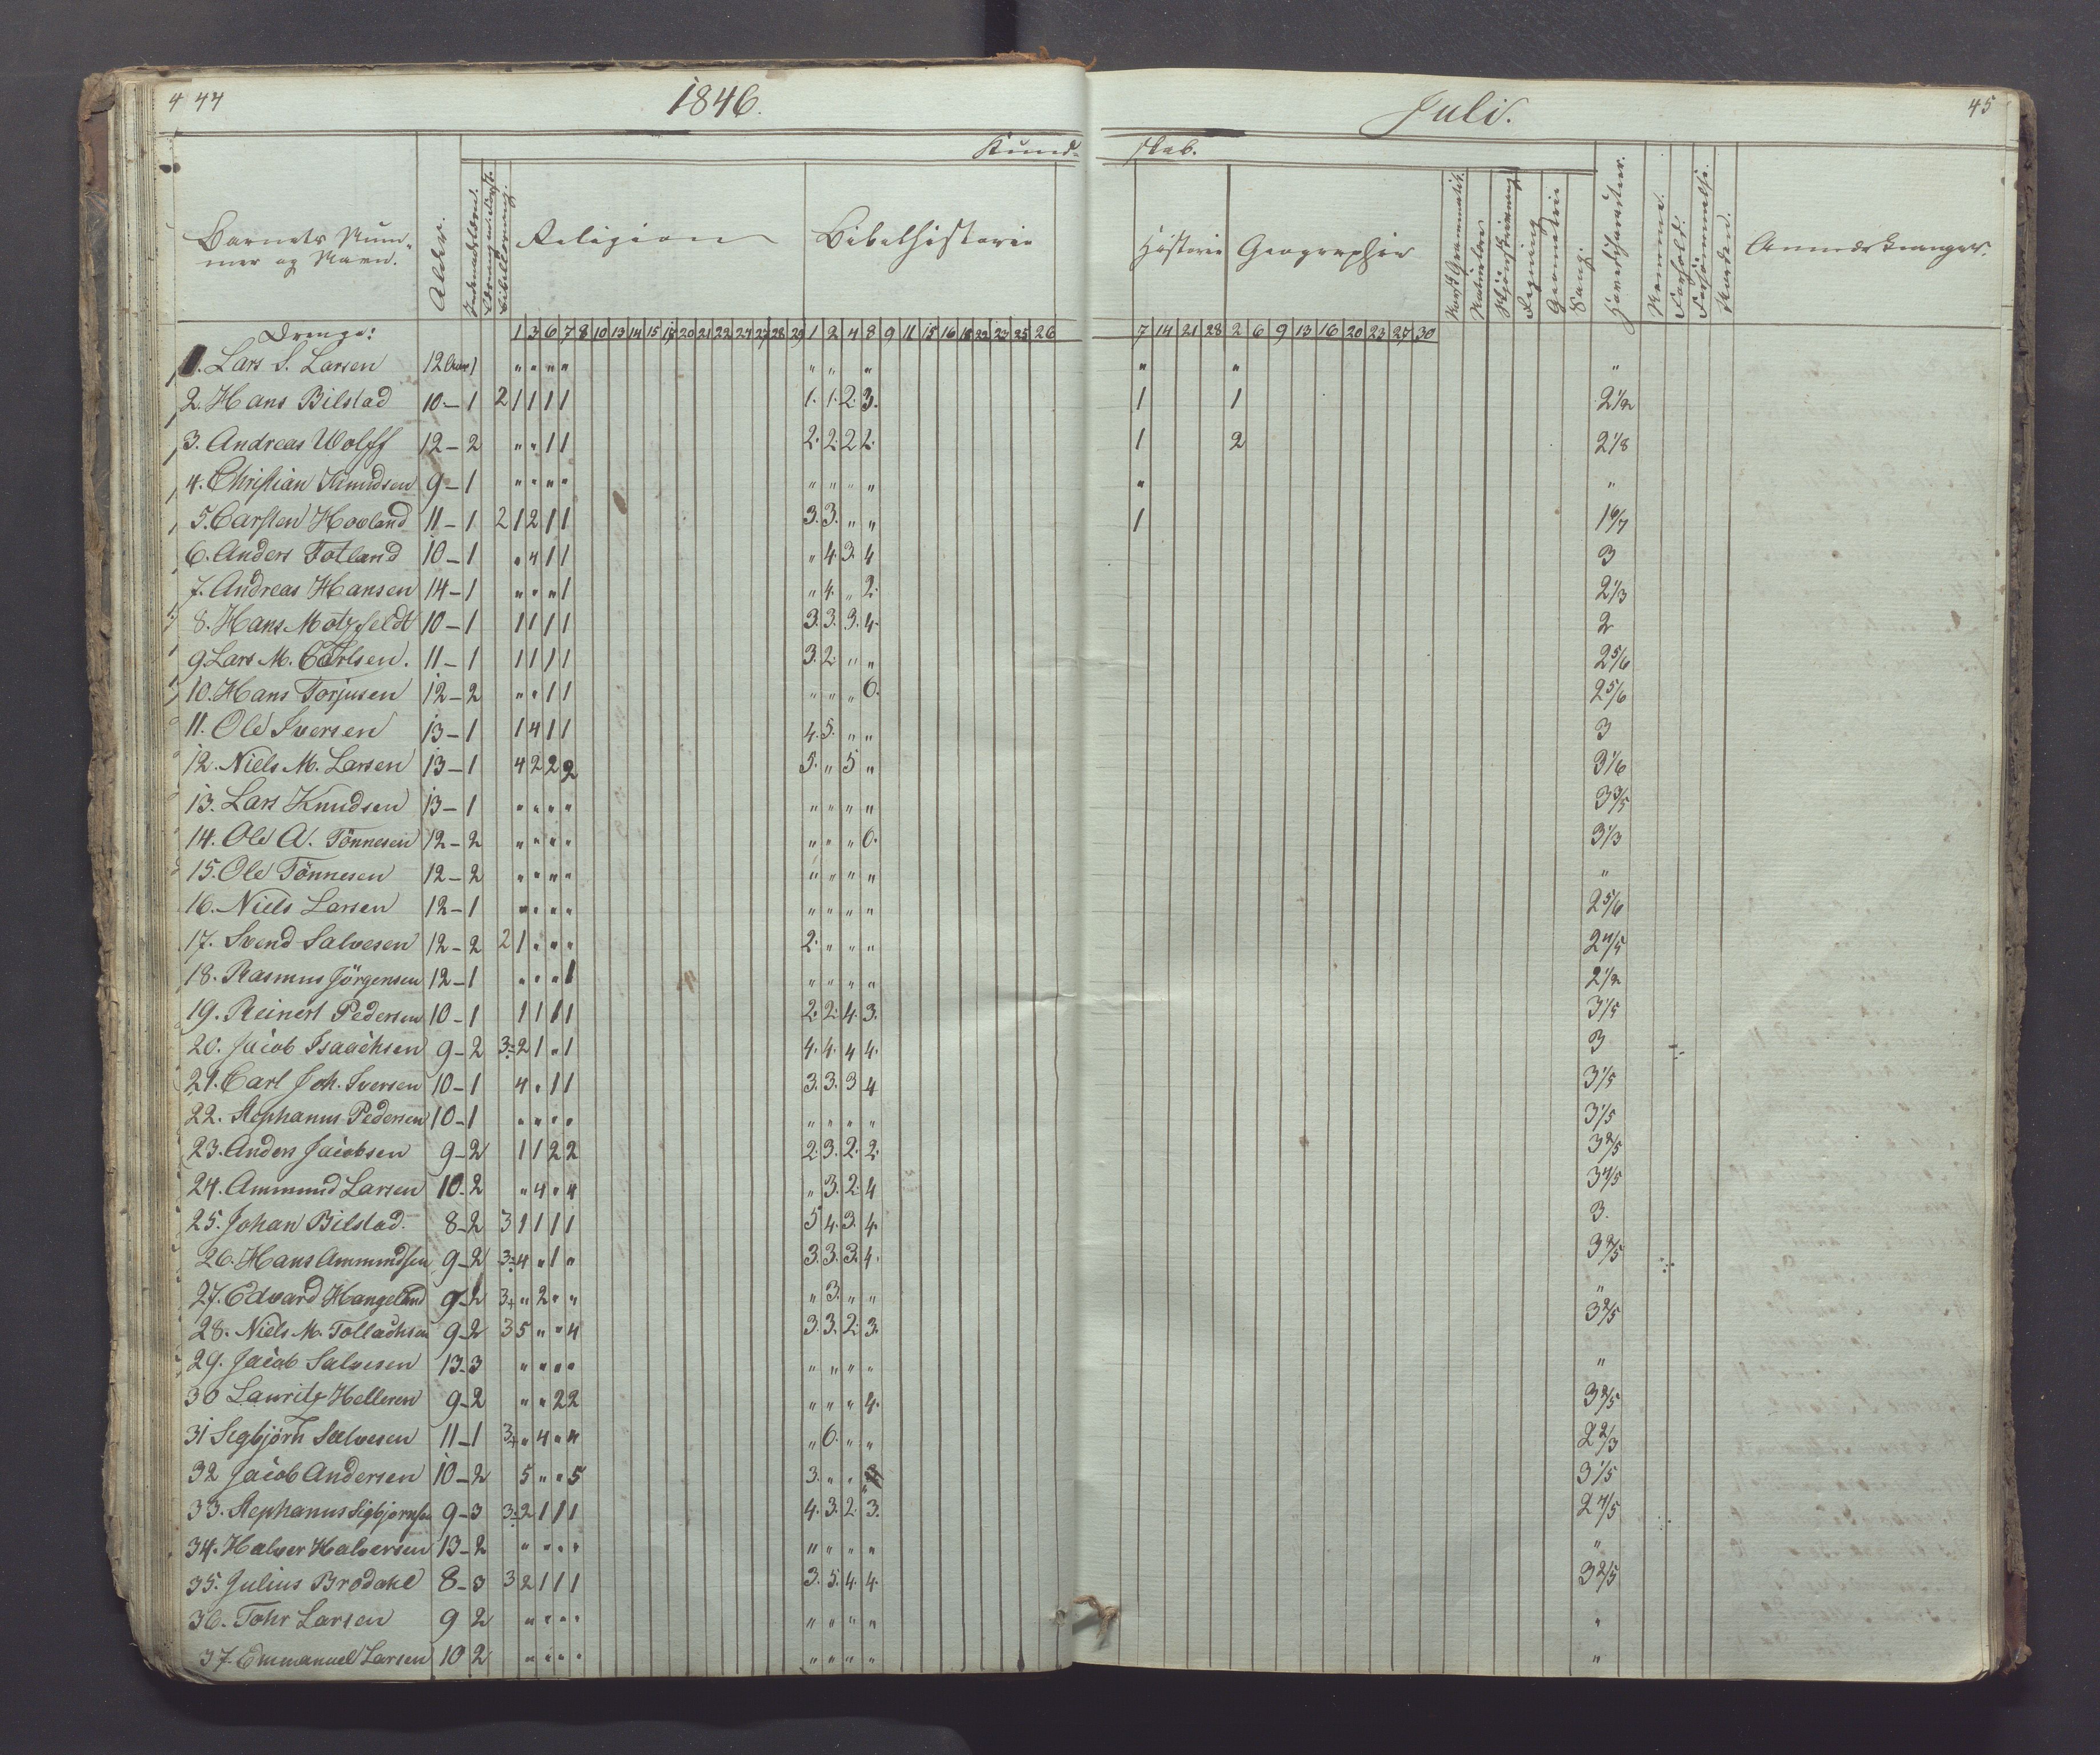 4 44 1846. Juli. 45
Kund- skab.
Barnets Num-
mer og Navn. Alder. Religion Bibelhistorie Historie Geographie Norsk Grammatik. Naturlære Tegning Geometrie Sang. Hovedcharakter. Nemme. Forhold. Forsømmelse. Anmærkninger.
Drenge: 1 3 6 7 8 10 13 14 15 17 20 21 22 24 27 28 29 1 2 4 8 9 11 15 16 18 22 23 25 26 7 14 21 28 2 6 9 13 16 20 23 27 30
1. Lars S. Larsen 12 Aar 1 " " " " " " " " " "
2. Hans Bilstad 10 – 1 2 1 1 1 1 1. 1. 2. 3. 1 1 2 1/2
3. Andreas Wolff 12 – 2 " " 1 1 2. 2. 2 2. 1 2 2 1/8
4. Christian Knudsen 9 – 1 " " " " " " " " " "
5. Carsten Hovland 11 – 1 2 1 2 1 1 3. 3. " " 1 1 6/7
6. Anders Totland 10 – 1 " 4 1 1 " 4. 3. 4 3
7. Andreas Hansen 14 – 1 " " " 1 " 4. " 2. 2 1/3
8. Hans Motzfeldt 10 – 1 1 1 1 1 3. 3. 3. 4. 2
9. Lars M. Carlsen. 11 – 1 1 1 1 1 3. 2. " " 2 5/6
10. Hans Torjusen 12 – 2 " " 1 1 " " " 6. 2 5/6
11. Ole Iversen 13 – 1 1 4 1 1 4. 5. " " 3
12. Niels M. Larsen 13 – 1 4 2 2 2 5. " 5 " 3 1/6
13. Lars Knudsen 13 – 1 " " " " " " " " 3 3/5
14. Ole A. Tönnesen 12 – 2 " " " " " " " 6. 3 1/3
15. Ole Tönnesen 12 – 2 " " " " " " " " "
16. Niels Larsen 12 – 1 " " " " " " " " 2 5/6
17. Svend Salvesen 12 – 2 2 1 " " " 2. " " " 2 4/5
18. Rasmus Jörgensen 12 – 1 " " " 1 " " " " 2 1/2
19. Reinert Pedersen 10 – 1 1 1 1 1 2. 2. 4. 3. 3 1/5
20. Jacob Isaachsen 9 – 2 3 2 1 " 1 4. 4. 4 4. 3
21. Carl Joh. Iversen 10 – 1 4 " 1 1 3. 3. 3 4 3 1/5
22. Stephanus Pedersen 10 – 1 " " " " " " " " 3 1/5
23. Anders Jacobsen 9 – 2 1 1 2 2 2. 3. 2. 2. 3 2/5
24. Ammund Larsen 10 – 2 " 4 " 4 " 3. 2. 4 3 4/5
25. Johan Bilstad. 8 – 2 3 1 1 1 1 5 4. 3. 4. 3.
26. Hans Ammundsen 9 – 2 3 4 " 1 " 3. 3. 3. 4. 3 2/5
27. Edvard Hangeland 9 – 2 3+ " 2 " " " 3. " " "
28. Niels M. Tollachsen 9 – 2 3 5 " " 4 3. 3. 2. 3. 3 2/5
29. Jacob Salvesen 13 – 3 " " " " " " " " "
30 Lauritz Helleren 9 – 2 " " 2 2 " " " 4. 3 2/5
31 Segbjörn Salvesen 11 – 1 3+ " 4 " " " 6. " " 2 2/3
32 Jacob Andersen 10 – 2 5 " " 5 3. " " 3 3 1/5
33. Stephanus Sigbjörnsen 9 – 3 3 2 1 1 1 4. 3. 2. 3. 2 4/5
34. Halvor Halvorsen 13 – 2 " " " " " " " " "
35. Julius Brodahl 8 – 3 3 2 1 1 1 3. 5. 4. 4. 3 2/5
36. Tohr Larsen 9 2 " " " " " " " " "
37. Emmanuel Larsen 10 2 " " " " " " " " "